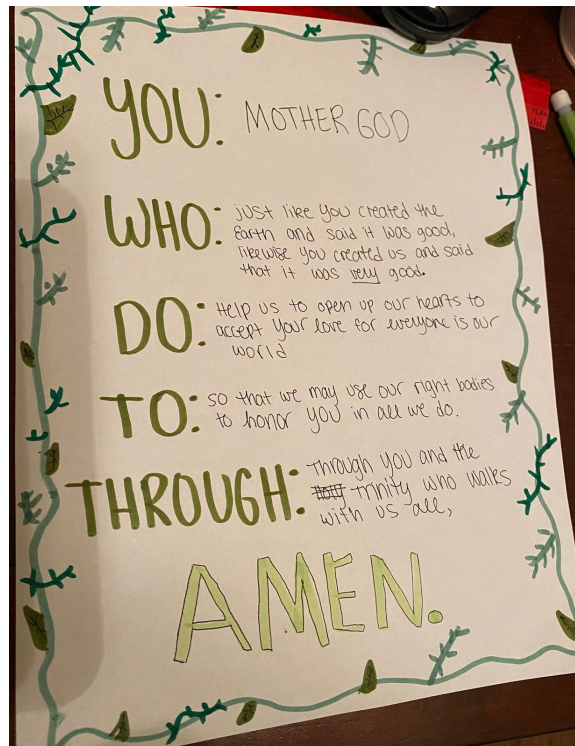 YOU: MOTHER GOD
WHO: just like you created the
Earth and said it was good,
likewise you created us and said
that it was very good.
DO: Help us to open up our hearts to
accept your love for everyone is our
world
TO: so that we may use our right bodies
to honor you in all we do.
THROUGH: Through you and the
trinity who walks
with us all,
AMEN.